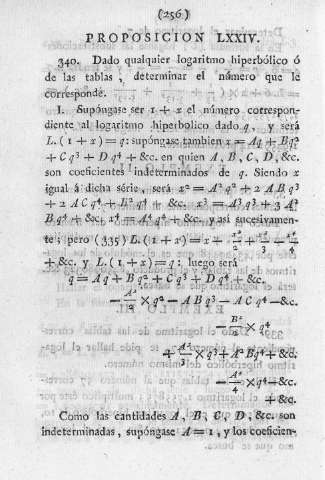 (256)
PROPOSICION LXXIV.
340. Dado qualquier logaritmo hiperbólico ó
de las tablas, determinar el número que le
corresponde.
I. Supóngase ser 1 + x el número correspon-
diente al logaritmo hiperbolico dado q, y será
L. (1 + x) = q: supóngase tambien x = Aq + Bq²
+ Cq³ + Dq⁴ + &c. en quien A, B, C, D, &c.
son coeficientes indeterminados de q. Siendo x
igual á dicha série, será x² = A²q² + 2ABq³
+ 2ACq⁴ + B²q⁴ + &c. x³ = A³q³ + 3A²
Bq⁴ + &c. x⁴ = A⁴q⁴ + &c. y asi sucesivamen-
te; pero (335) L. (1 + x) = x + x²/2 + x³/3 − x⁴/4
+ &c. y L. (1 + x) = q: luego será
q = Aq + Bq² + Cq³ + Dq⁴ + &c.
− A²/2 × q² − ABq³ − ACq⁴ − &c.
− B²/2 × q⁴
+ A³/3 × q³ + A²Bq⁴ + &c.
− A⁴/4 × q⁴ − &c.
+ &c.
Como las cantidades A, B, C, D, &c. son
indeterminadas, supóngase A = 1, y los coeficien-